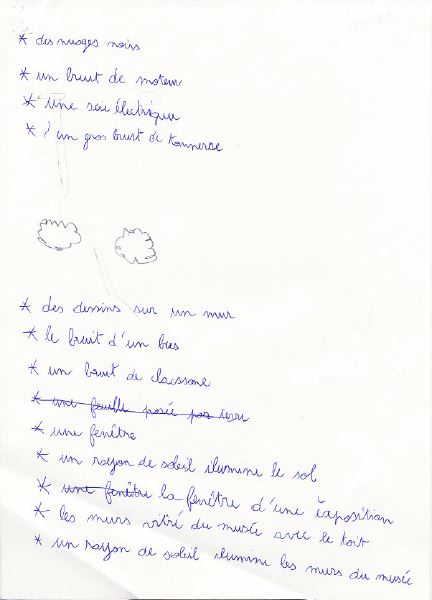 * des nuages noirs
* un bruit de moteur
* une scie électrique
* un gros bruit de tonnerse
* des dessins sur un mur
* le bruit d'un bus
* un bruit de clacssone
* une feuille posée par
* une fenêtre
* un rayon de soleil ilumine le sol
* une fenêtre la fenêtre d'une exposition
* les murs vitré du musée avec le toit
* un rayon de soleil ilumine les murs du musée